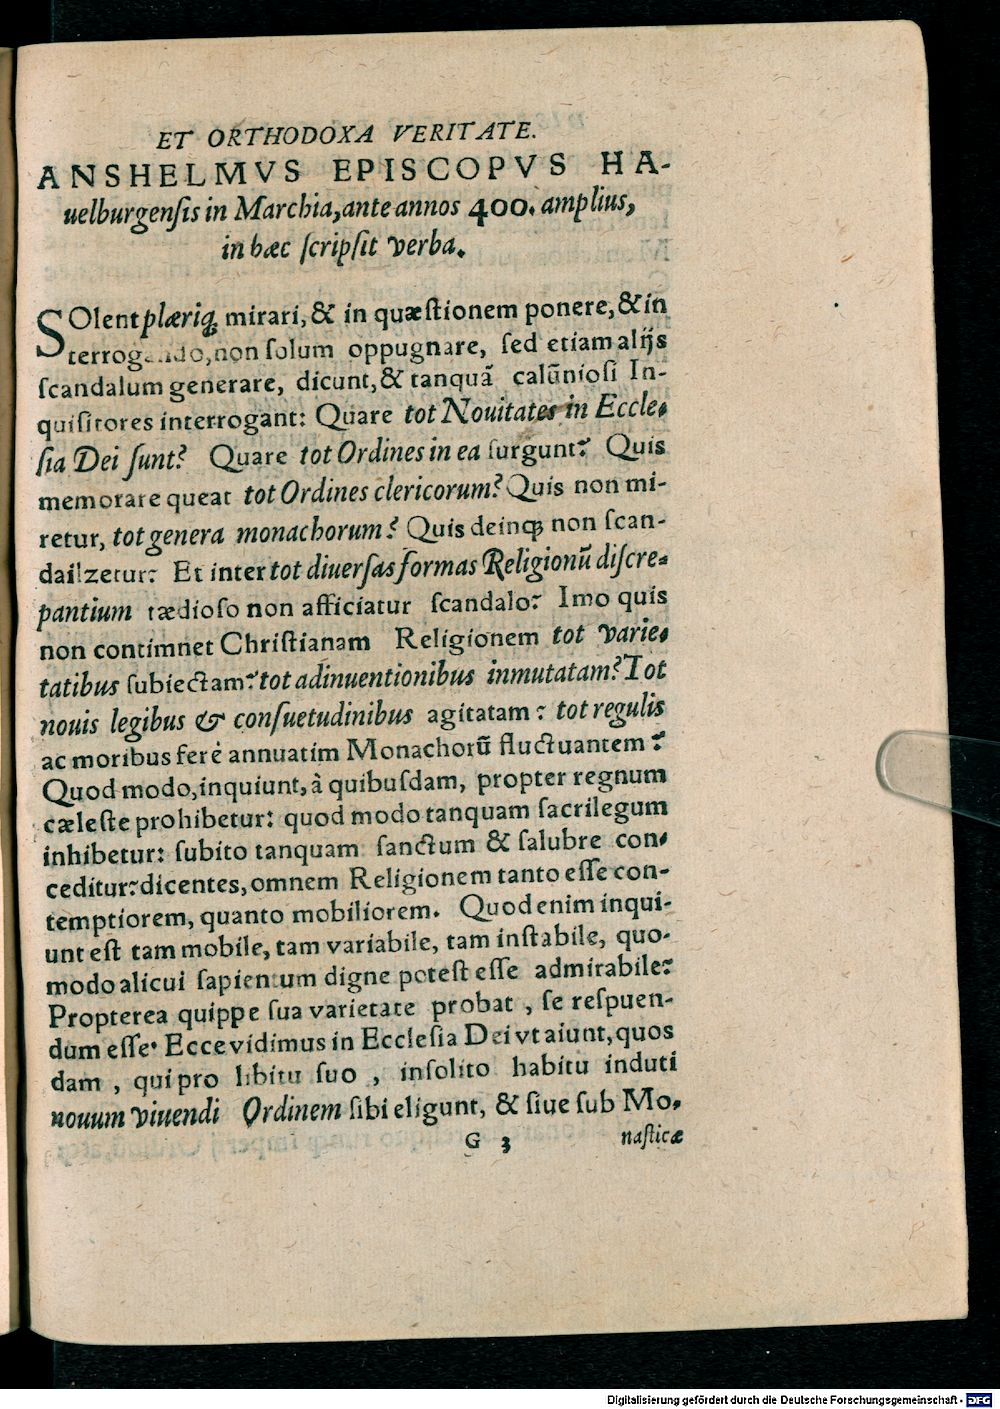 ET ORTHODOXA VERITATE.
ANSHELMVS EPISCOPVS HA-
uelburgenſis in Marchia, ante annos 400. amplius,
in hæc ſcripſit verba.
SOlent plæriq; mirari, & in quæſtionem ponere, & in
terrogando, non ſolum oppugnare, ſed etiam alijs
ſcandalum generare, dicunt, & tanquã calũnioſi In-
quiſitores interrogant: Quare tot Nouitates in Eccle-
ſia Dei ſunt? Quare tot Ordines in ea ſurgunt? Quis
memorare queat tot Ordines clericorum? Quis non mi-
retur, tot genera monachorum? Quis deinq; non ſcan-
dailzetur? Et inter tot diuerſas formas Religionũ diſcre-
pantium tædioſo non afficiatur ſcandalo? Imo quis
non contimnet Chriſtianam Religionem tot varie-
tatibus ſubiectam? tot adinuentionibus inmutatam? Tot
nouis legibus & conſuetudinibus agitatam? tot regulis
ac moribus ferè annuatim Monachorũ fluctuantem?
Quod modo, inquiunt, à quibuſdam, propter regnum
cæleſte prohibetur: quod modo tanquam ſacrilegum
inhibetur: ſubito tanquam ſanctum & ſalubre con-
ceditur? dicentes, omnem Religionem tanto eſſe con-
temptiorem, quanto mobiliorem. Quod enim inqui-
unt eſt tam mobile, tam variabile, tam inſtabile, quo-
modo alicui ſapientum digne poteſt eſſe admirabile?
Propterea quippe ſua varietate probat, ſe reſpuen-
dum eſſe. Ecce vidimus in Eccleſia Dei vt aiunt, quos
dam, qui pro libitu ſuo, inſolito habitu induti
nouum viuendi Ordinem ſibi eligunt, & ſiue ſub Mo-
G 3 naſticæ
Digitalisierung gefördert durch die Deutsche Forschungsgemeinschaft - DFG